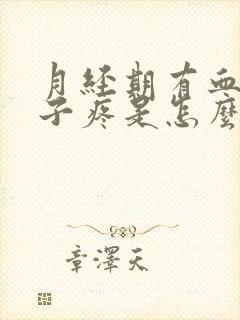 月经期有血
子疼是怎麽
章澤天